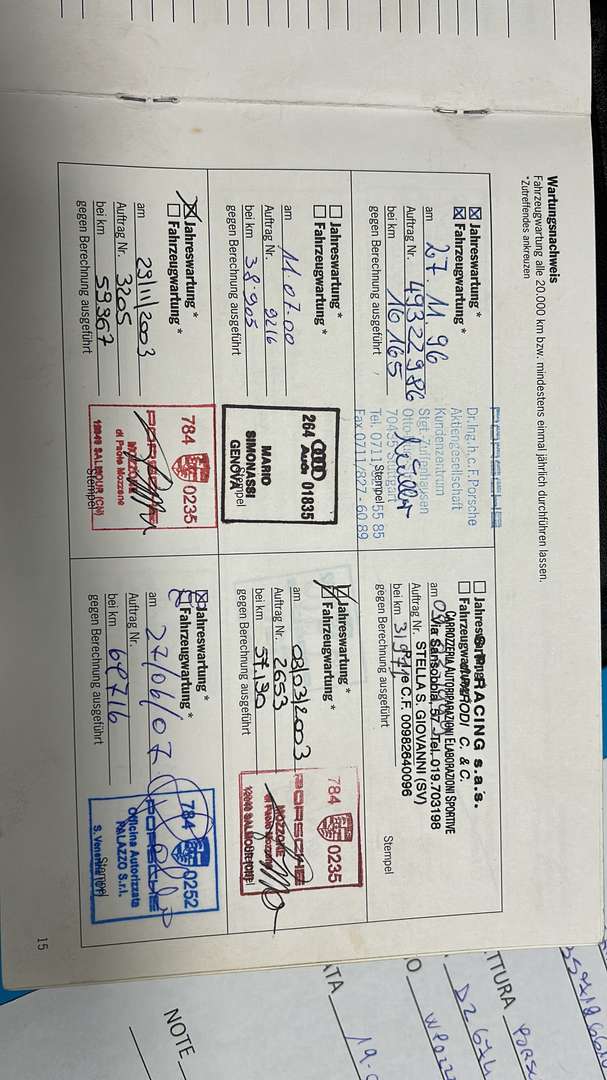 Wartungsnachweis
Fahrzeugwartung alle 20.000 km bzw. mindestens einmal jährlich durchführen lassen.
*Zutreffendes ankreuzen
Jahreswartung *
Fahrzeugwartung *
am 27. 11 96
Auftrag Nr. 49322986
bei km 16165
gegen Berechnung ausgeführt
Dr.Ing.h.c.F.Porsche
Aktiengesellschaft
Kundenzentrum
Stgt.-Zuffenhausen
Tel. 0711
55 85
Stempel
Fax 0711/827-60 89
Jahres
Fahrzeugwa
RACING s.a.s.
PARODI C. & C.
CARROZZERIA AUTORIPARAZIONI ELABORAZIONI SPORTIVE
Via Sansobbia, 37 Tel. 019.703198
am
Auftrag Nr. STELLA S. GIOVANNI (SV)
bei km
C.F. 00982640096
gegen Berechnung ausgeführt
Stempel
Jahreswartung *
Fahrzeugwartung *
am 11.07.00
Auftrag Nr. 9216
bei km 38.905
gegen Berechnung ausgeführt
264 Audi 01835
MARIO
SIMONASSI
GENOVA
Stempel
Jahreswartung *
Fahrzeugwartung *
am 03/03/2003
Auftrag Nr. 2653
bei km
gegen Berechnung ausgeführt
784 0235
PORSCHE
MOZZONE
di Paolo Mozzone
Jahreswartung *
Fahrzeugwartung *
am 29/11/2003
Auftrag Nr. 3205
bei km 59367
gegen Berechnung ausgeführt
784 0235
PORSCHE
MOZZONE
di Paolo Mozzone
12040 SALMOUR (CN)
Stempel
Jahreswartung *
Fahrzeugwartung *
am 27/06/07
Auftrag Nr.
bei km 69716
gegen Berechnung ausgeführt
784 0252
PORSCHE
Officina Autorizzata
PALAZZO S.r.l.
Stempel
15
NOTE